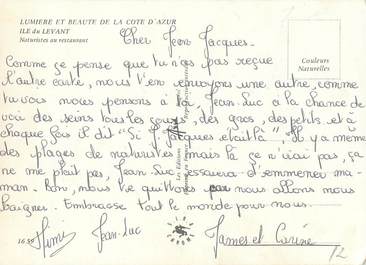 LUMIERE ET BEAUTE DE LA COTE D'AZUR
ILE du LEVANT
Naturistes au restaurant
Couleurs
Naturelles
Cher Jean Jacques.
Comme ça pense que tu n'as pas reçue
l'autre carte, nous t'en envoyons une autre, comme
tu vois nous pensons à toi, Jean-Luc a la chance de
voir des seins tous les jours, des gros, des petits et à
chaque fois il dit "Si J Jacques etait là". Il y a meme
des plages de naturistes mais là ça n'irai pas, ça
ne me plait pas, Jean-Luc essuera d'emmener ma-
man. Bon, nous te quittons nous allons nous
baigner. Embrasse tout le monde pour nous.
Mimi Jean-Luc James et Carine